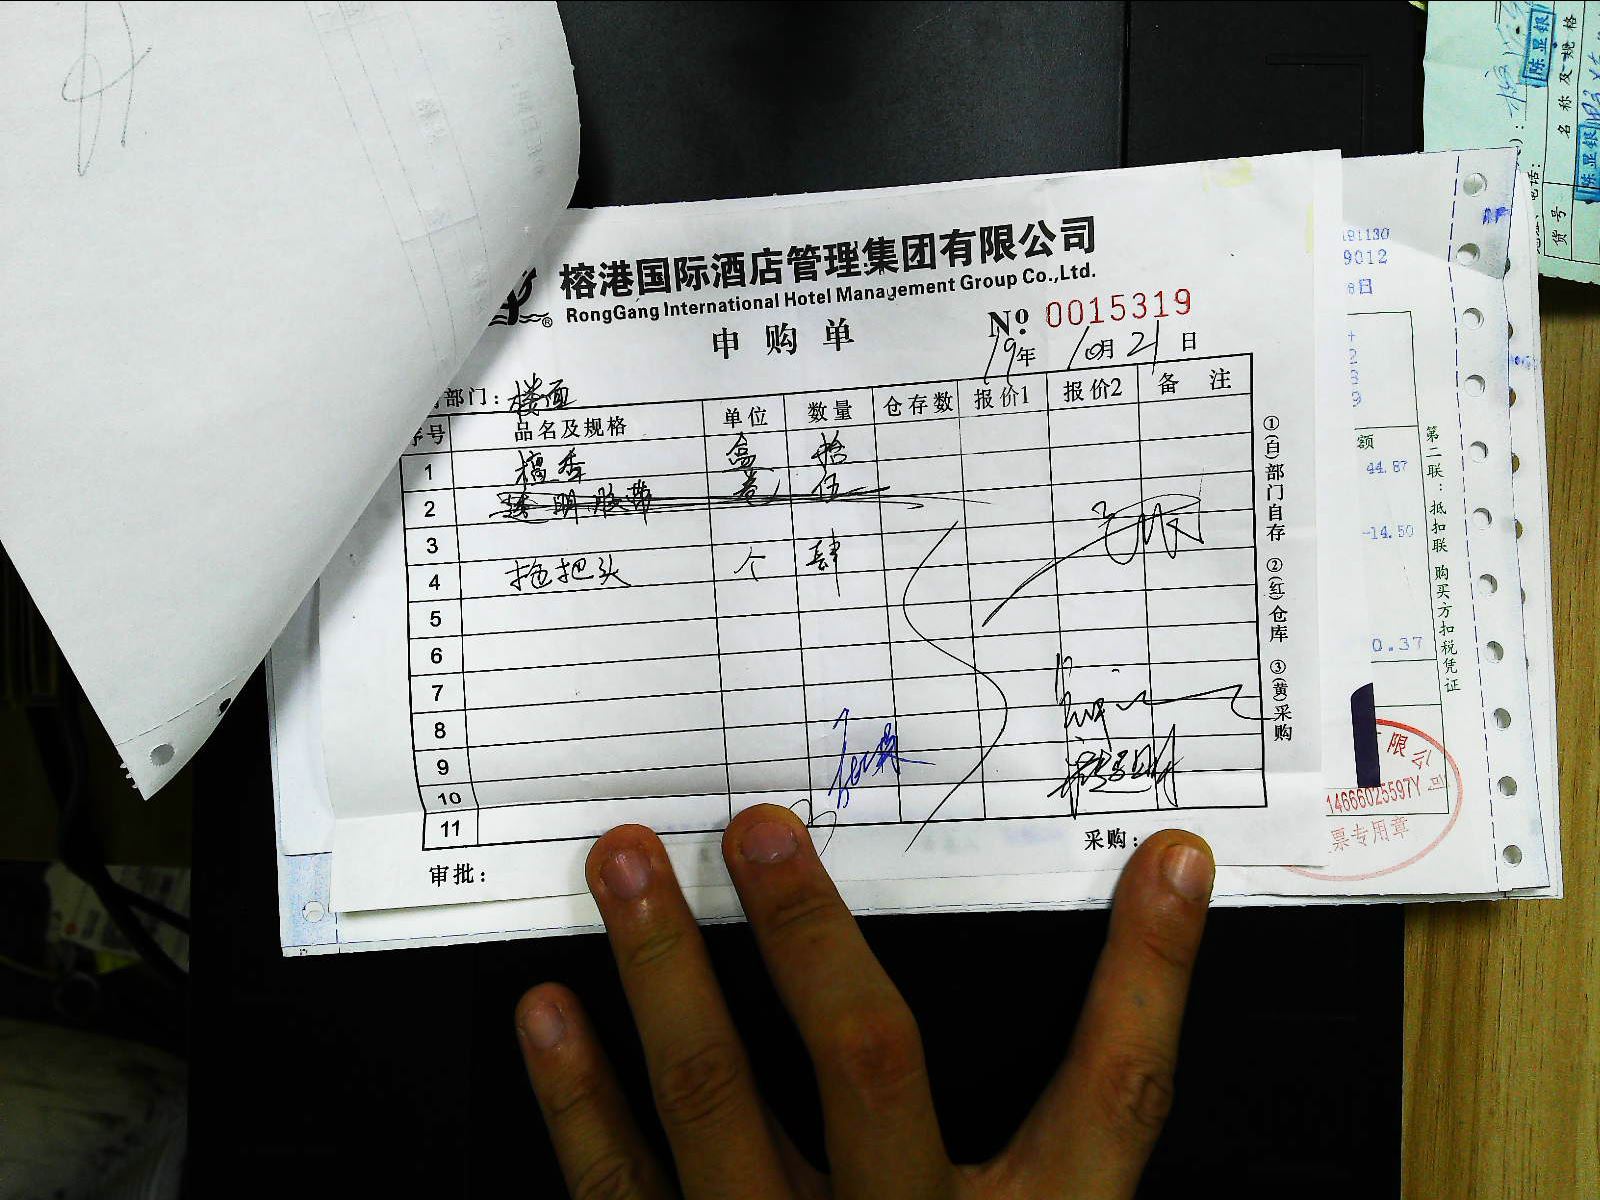 榕港国际酒店管理集团有限公司
RongGang International Hotel Management Group Co.,Ltd.
申购单
№ 0015319
19年 10月 21日
部门：楼面
序号 品名及规格 单位 数量 仓存数 报价1 报价2 备注
1 檀香 盒 拾
2 透明胶带 卷 伍
3
4 拖把头 个 肆
5
6
7
8
9
10
11
审批：
采购：
①(白)部门自存 ②(红)仓库 ③(黄)采购
191130
9012
8日
+
2
3
9
额
44.87
-14.50
0.37
第二联：抵扣联 购买方扣税凭证
有限公司
14666025597Y
票专用章
名称及规格
货号
电话:
陈显银
陈显银